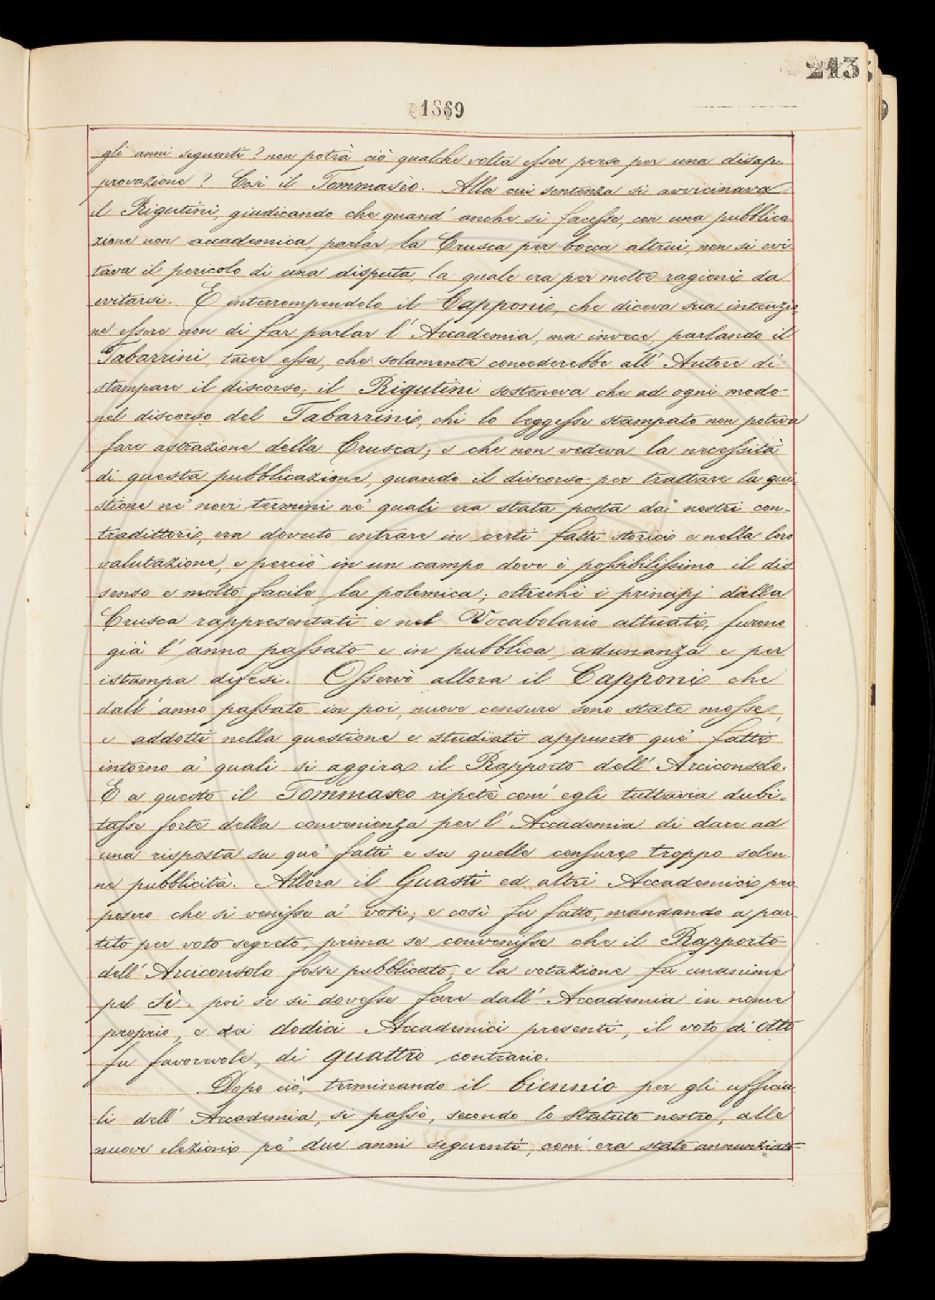 213
1869
gli anni seguenti? non potrà ciò qualche volta esser preso per una disap-
provazione? Così il Tommasèo. Alla cui sentenza si avvicinava
il Rigutini, giudicando che quand' anche si facesse, con una pubblica
zione non accademica, parlar la Crusca per bocca altrui, non si evi
tava il pericolo di una disputa, la quale era per molte ragioni da
evitarsi. E interrompendolo il Capponi, che diceva sua intenzio-
ne essere non di far parlar l' Accademia, ma invece, parlando il
Tabarrini, tacer essa, che solamente concederebbe all' Autore di
stampare il discorso; il Rigutini sosteneva che ad ogni modo
nel discorso del Tabarrini, chi lo leggesse stampato non poteva
fare astrazione della Crusca; e che non vedeva la necessità
di questa pubblicazione, quando il discorso per trattare la qui-
stione ne' novi termini ne' quali era stata posta da' nostri con-
tradittori, era dovuto entrare in certi fatti storici e nella loro
valutazione, e perciò in un campo dove è possibilissimo il dis
senso e molto facile la polemica; oltrechè i principj dalla
Crusca rappresentati e nel Vocabolario attuati, furono
già l' anno passato e in pubblica adunanza e per
istampa difesi. Osservò allora il Capponi che
dall' anno passato in poi, nuove censure sono state mosse,
e addotti nella questione e studiati appunto que' fatti
intorno a' quali si aggira il Rapporto dell' Arciconsolo.
E a questo il Tommaseo ripetè com' egli tuttavia dubi-
tasse forte della convenienza per l' Accademia di dare ad
una risposta su que' fatti e su quelle censure troppo solen
ne pubblicità. Allora il Guasti ed altri Accademici pro
posero che si venisse a' voti; e così fu fatto, mandando a par-
tito per voto segreto, prima se convenisse che il Rapporto
dell' Arciconsolo fosse pubblicato, e la votazione fu unanime
pel sì: poi se si dovesse fare dall' Accademia in nome
proprio, e da dodici Accademici presenti, il voto di otto
fu favorevole, di quattro contrario.
Dopo ciò, terminando il biennio per gli ufficia
li dell' Accademia, si passò, secondo lo Statuto nostro, alle
nuove elezioni pe' due anni seguenti, com' era stato annunziato